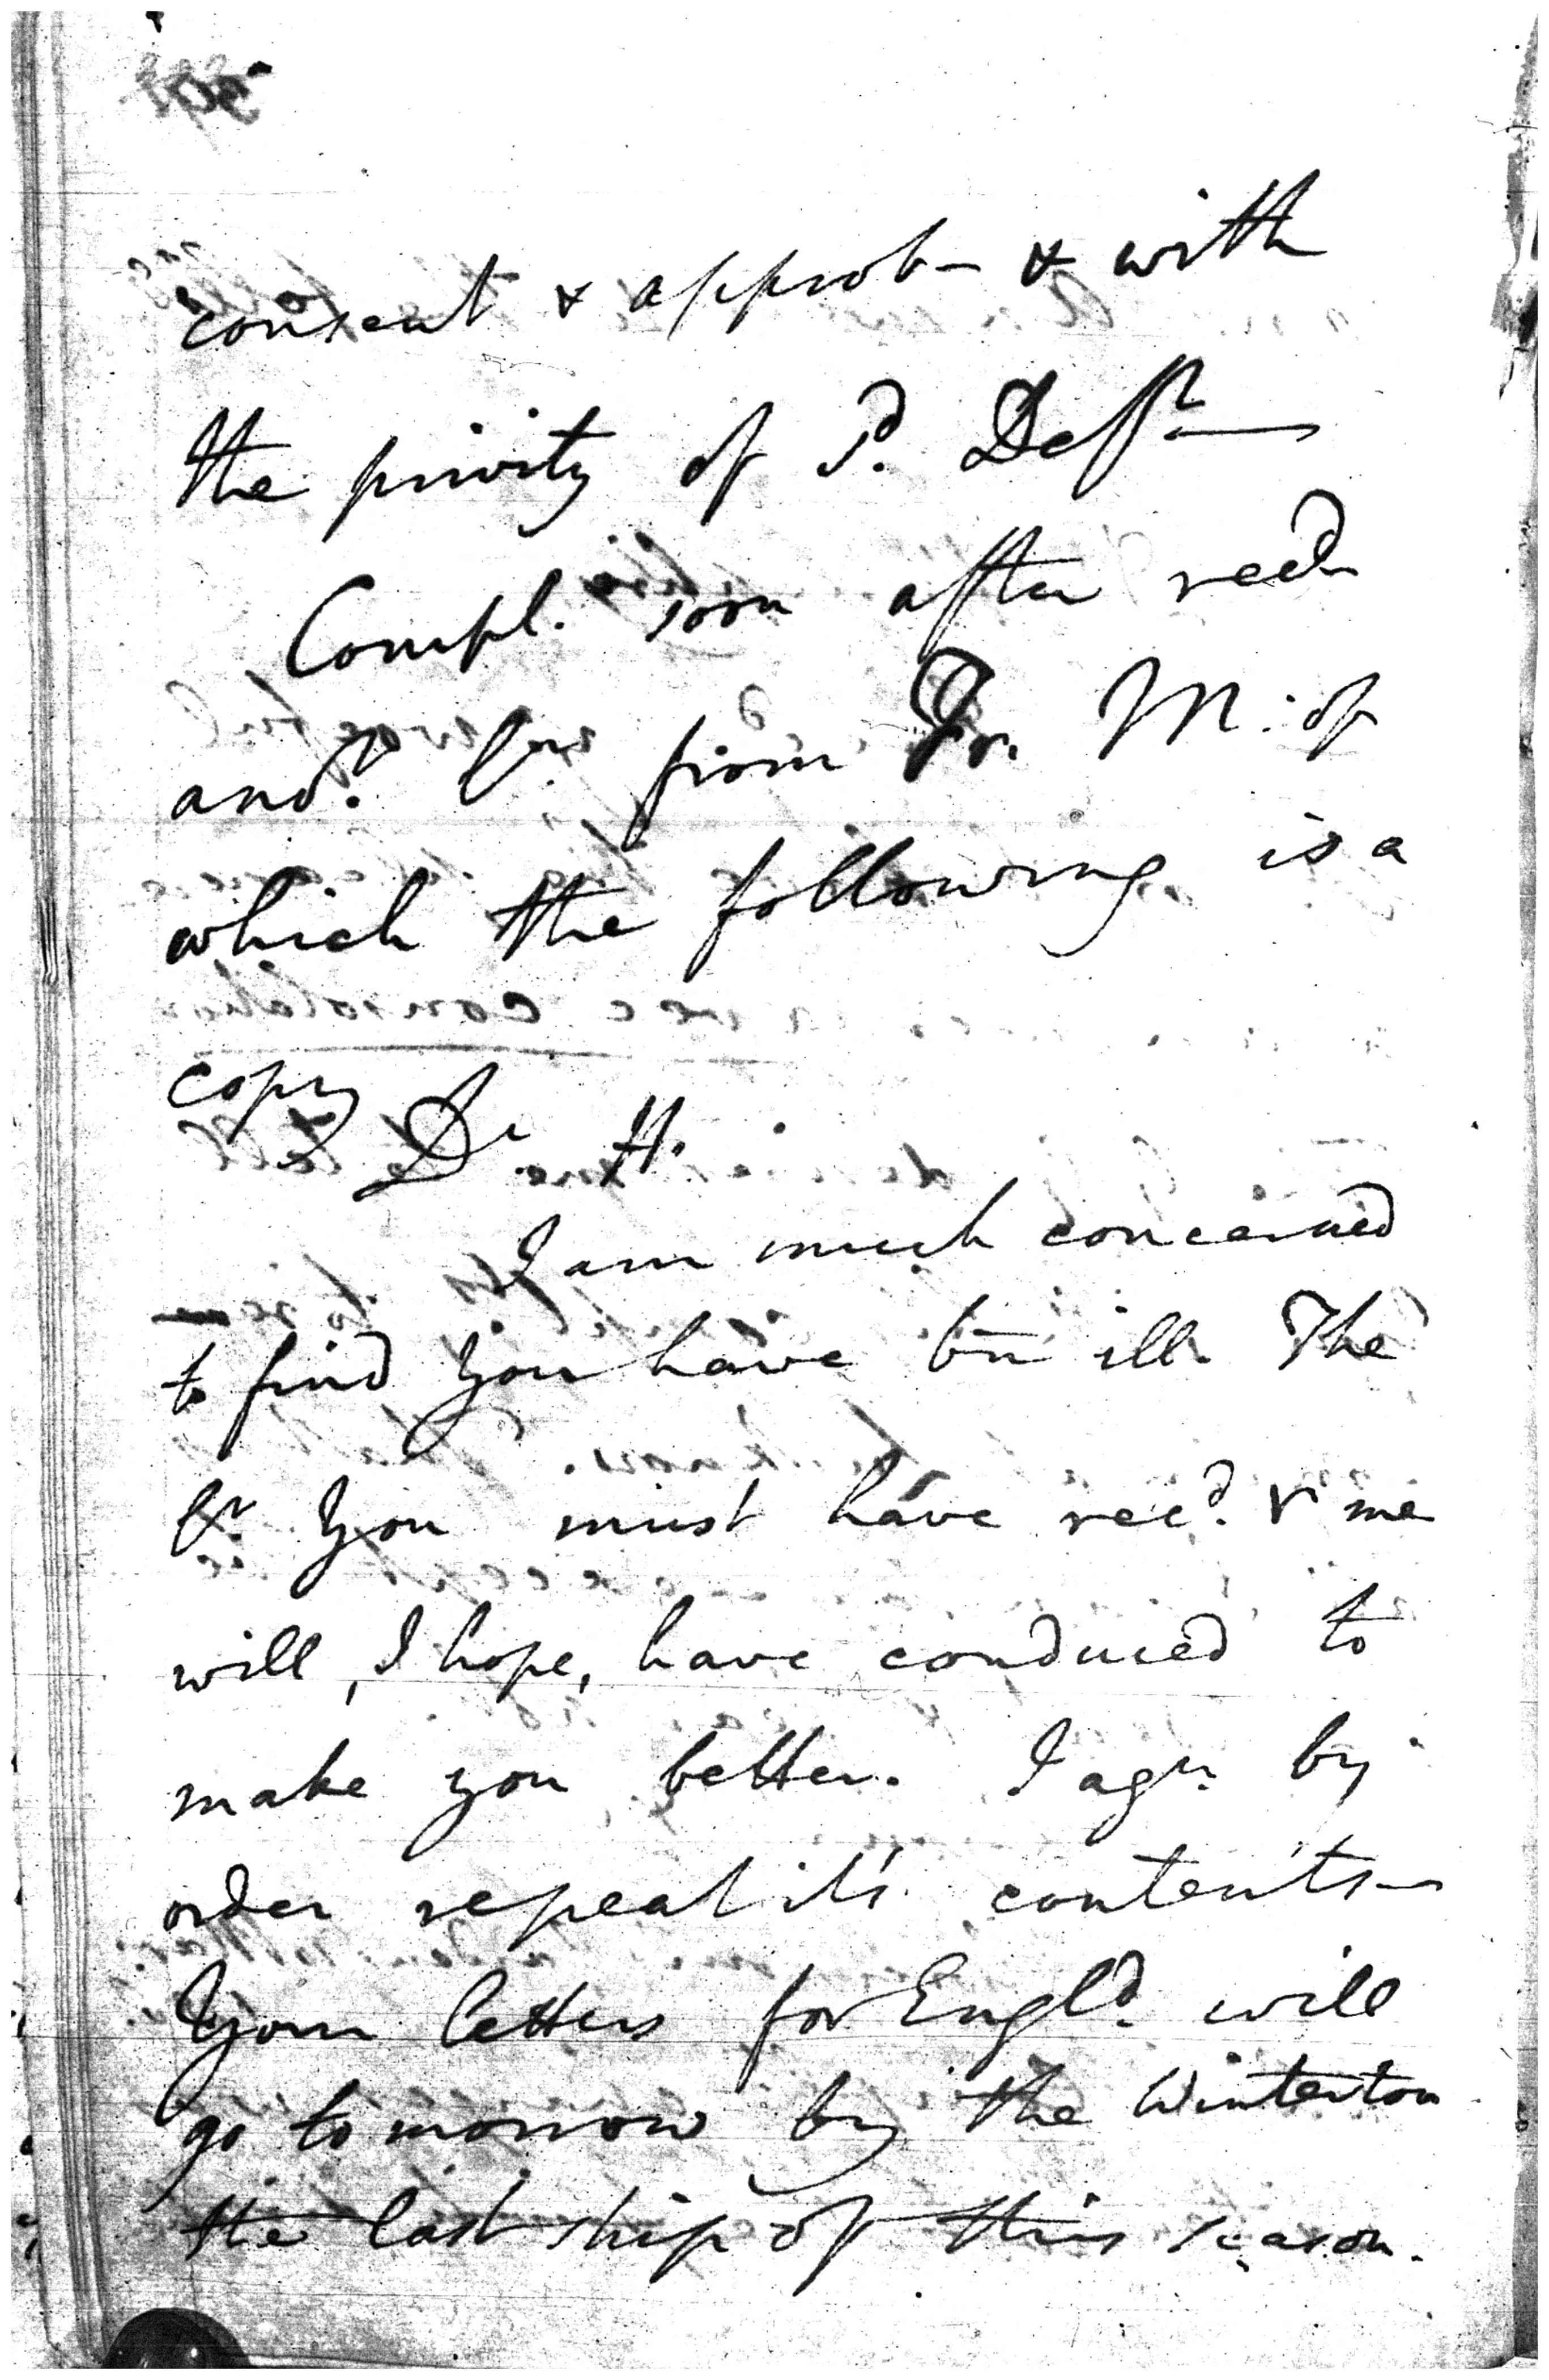 consent & approb- & with
the privity of Sd. Deft
Compl. soon after recd
anor. Lr. from Jr. M. of
which the following is a
copy
Dr H.
I am much concerned
to find you have bn ill. The
Lr you must have recd. fr me
will, I hope, have conduced to
make you better. I agn. by
order repeat it's contents
Your letters for Engld. will
go tomorrow by the Winterton
the last ship of this season.